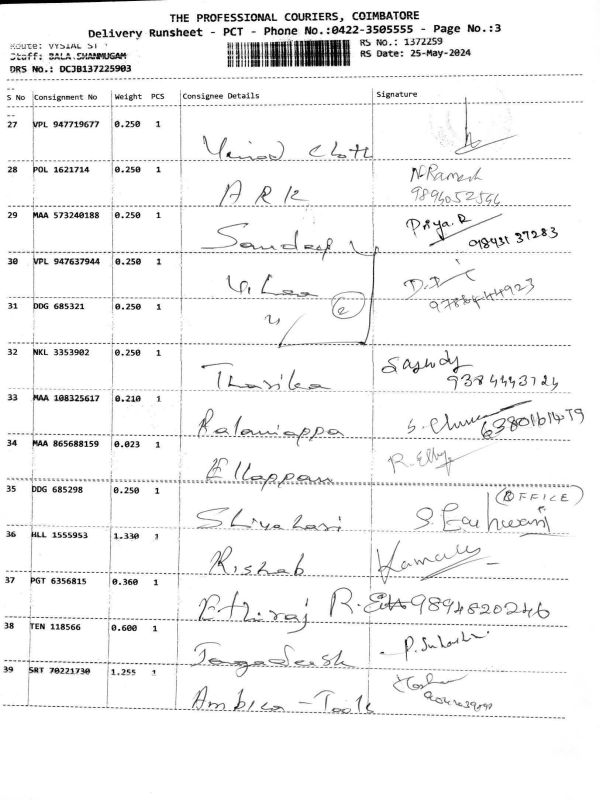 THE PROFESSIONAL COURIERS, COIMBATORE
Delivery Runsheet - PCT - Phone No.:0422-3505555 - Page No.:3
Route: VYSIAL ST
RS No.: 1372259
Staff: BALA SHANMUGAM
RS Date: 25-May-2024
DRS No.: DCJB137225903
S No Consignment No Weight PCS Consignee Details Signature
27 VPL 947719677 0.250 1
Cloth
28 POL 1621714 0.250 1 N.Ramesh
A R K 9894052544
29 MAA 573240188 0.250 1 Priya.R
Sandeep 98431 37283
30 VPL 947637944 0.250 1
9788444923
31 DDG 685321 0.250 1
32 NKL 3353902 0.250 1
Tharika 9384443724
33 MAA 108325617 0.210 1
Palaniappa
34 MAA 865688159 0.023 1
Ellappan
35 DDG 685298 0.250 1 OFFICE
Shivahari
36 HLL 1555953 1.330 1
Rishab
37 PGT 6356815 0.360 1
Ethiraj 9894820246
38 TEN 118566 0.600 1
Jagadeesh
39 SRT 70221730 1.255 1
Ambica - Tools